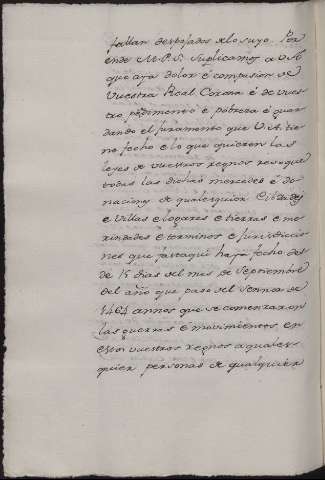 fallan despojados de lo suyo. Por
ende M. P. S. Suplicamos a V. A.
que aya dolor é compasion de
Vuestra Real Corona é de vues-
tro pedimento é pobreza é guar-
dando el juramento que V. A. tie-
ne fecho e lo que quieren las
leyes de vuestros regnos revoque
todas las dichas mercedes é do-
naciones de qualesquier Cibdades
e villas e logares e tierras e me-
rindades é terminos e juridiccio-
nes que fastaqui haya fecho des-
de 15 dias del mes de Septiembre
del año que paso del Sennor de
1464 annos que se comenzaron
las guerras é movimientos en
estos vuestros regnos a quales-
quier personas de qualquier